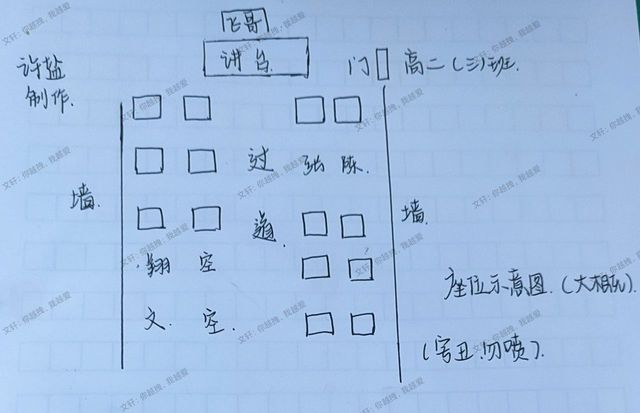 飞哥
讲台
许盐
制作.
门
高二(三)班.
过
张 陈
墙.
道.
墙.
翔 空
文. 空.
座位示意图.(大概)
(字丑.勿喷).
文轩:你越拽,我越爱